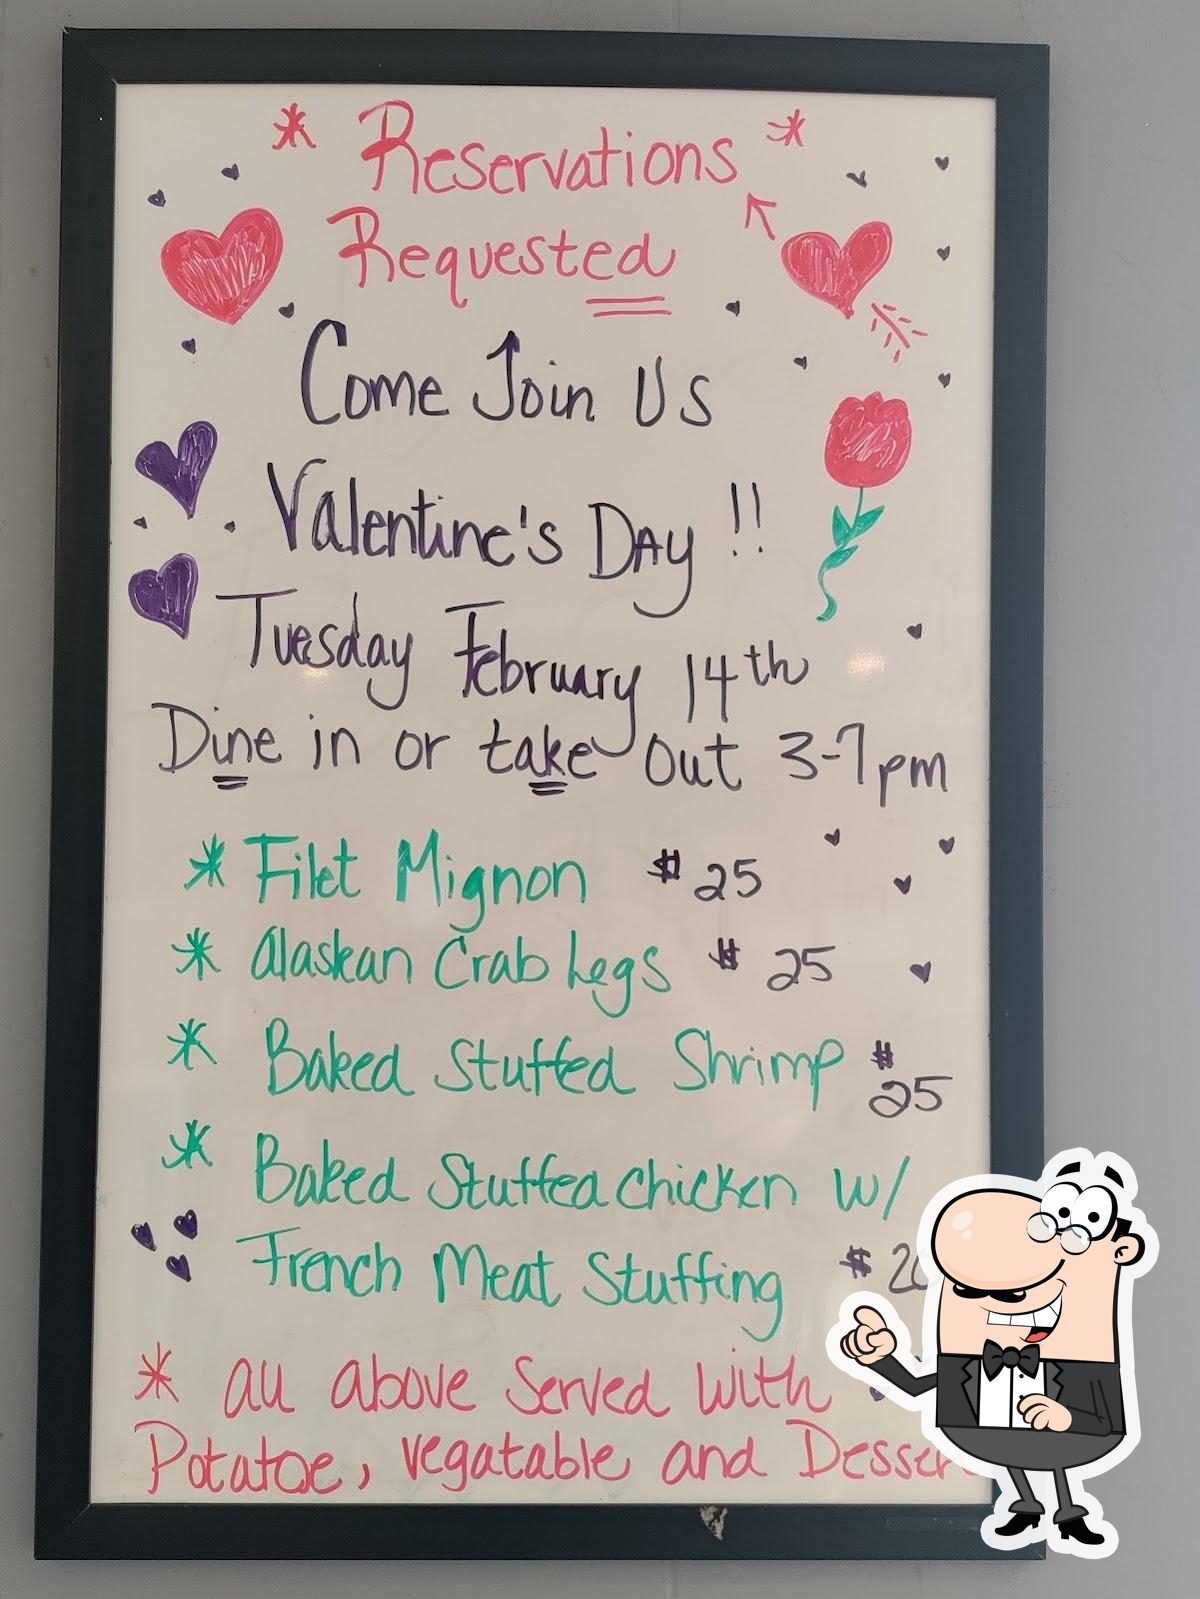 * Reservations *
Requested
Come Join Us
Valentine's Day !!
Tuesday February 14th
Dine in or take out 3-7pm
* Filet Mignon $25
* Alaskan Crab Legs $25
* Baked Stuffed Shrimp $
25
* Baked Stuffed Chicken w/
French Meat Stuffing $
* all above Served with
Potatoe, vegatable and